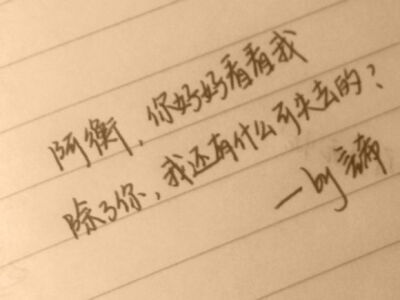 阿衡，你好好看看我
除了你，我还有什么可失去的？
—by 諦